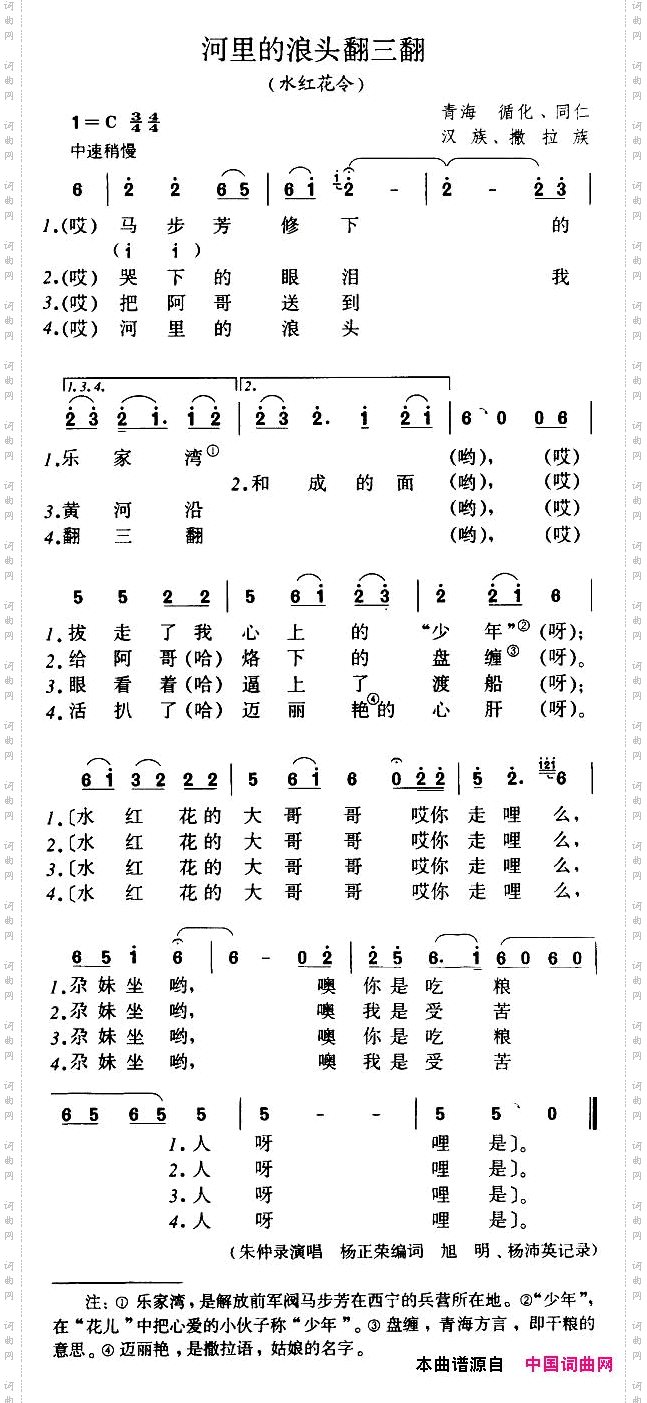 河里的浪头翻三翻
(水红花令)
1=C 3/4 4/4
青海 循化、同仁
汉族、撒拉族
中速稍慢
6 | 2 2 6 5 | 6 1 2 - | 2 - 2 3 |
1.(哎) 马步芳 修下 的
(i i)
2.(哎) 哭下的 眼泪 我
3.(哎) 把阿哥 送到
4.(哎) 河里的 浪头
1.3.4. 2.
2 3 2 1. 1 2 | 2 3 2. 1 2 1 | 6 0 0 6 |
1.乐家湾① (哟), (哎)
2.和成的面 (哟), (哎)
3.黄河沿 (哟), (哎)
4.翻三翻 (哟), (哎)
5 5 2 2 | 5 6 1 2 3 | 2 2 1 6 |
1.拔走了我 心上的 “少年”②(呀);
2.给阿哥(哈) 烙下的 盘缠③(呀)。
3.眼看着(哈) 逼上了 渡船(呀);
4.活扒了(哈) 迈丽艳④的 心肝(呀)。
6 1 3 2 2 2 | 5 6 1 6 0 2 2 | 5 2. 1 2 1 6
1.〔水红花的 大哥哥 哎你 走哩么,
2.〔水红花的 大哥哥 哎你 走哩么,
3.〔水红花的 大哥哥 哎你 走哩么,
4.〔水红花的 大哥哥 哎你 走哩么,
6 5 1 6 | 6 - 0 2 | 2 5 6. 1 6 0 6 0
1.尕妹坐哟, 噢 你是吃粮
2.尕妹坐哟, 噢 我是受苦
3.尕妹坐哟, 噢 你是吃粮
4.尕妹坐哟, 噢 我是受苦
6 5 6 5 5 | 5 - - | 5 5 0 ‖
1.人 呀 哩是〕。
2.人 呀 哩是〕。
3.人 呀 哩是〕。
4.人 呀 哩是〕。
(朱仲录演唱 杨正荣编词 旭明、杨沛英记录)
注: ① 乐家湾,是解放前军阀马步芳在西宁的兵营所在地。②“少年”,
在“花儿”中把心爱的小伙子称“少年”。③ 盘缠,青海方言,即干粮的
意思。④ 迈丽艳,是撒拉语,姑娘的名字。
本曲谱源自 中国词曲网